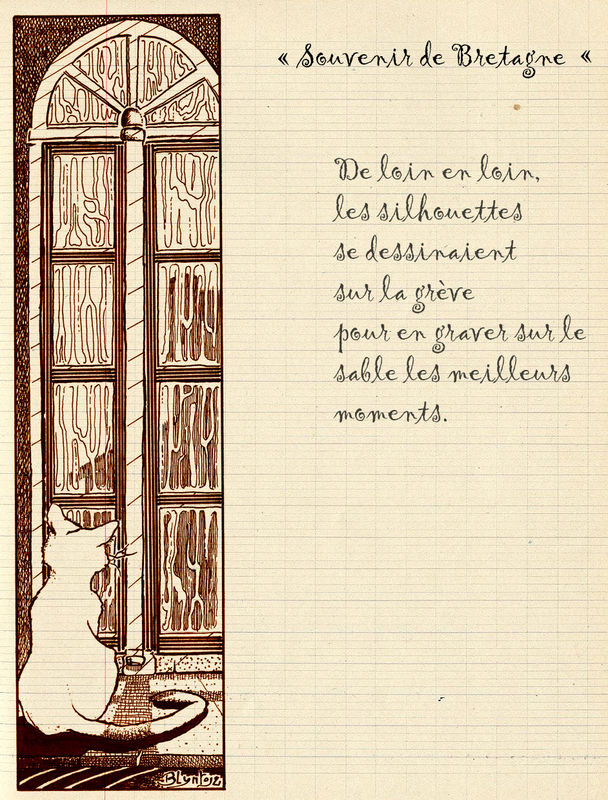 « Souvenir de Bretagne «
De loin en loin,
les silhouettes
se dessinaient
sur la grève
pour en graver sur le
sable les meilleurs
moments.